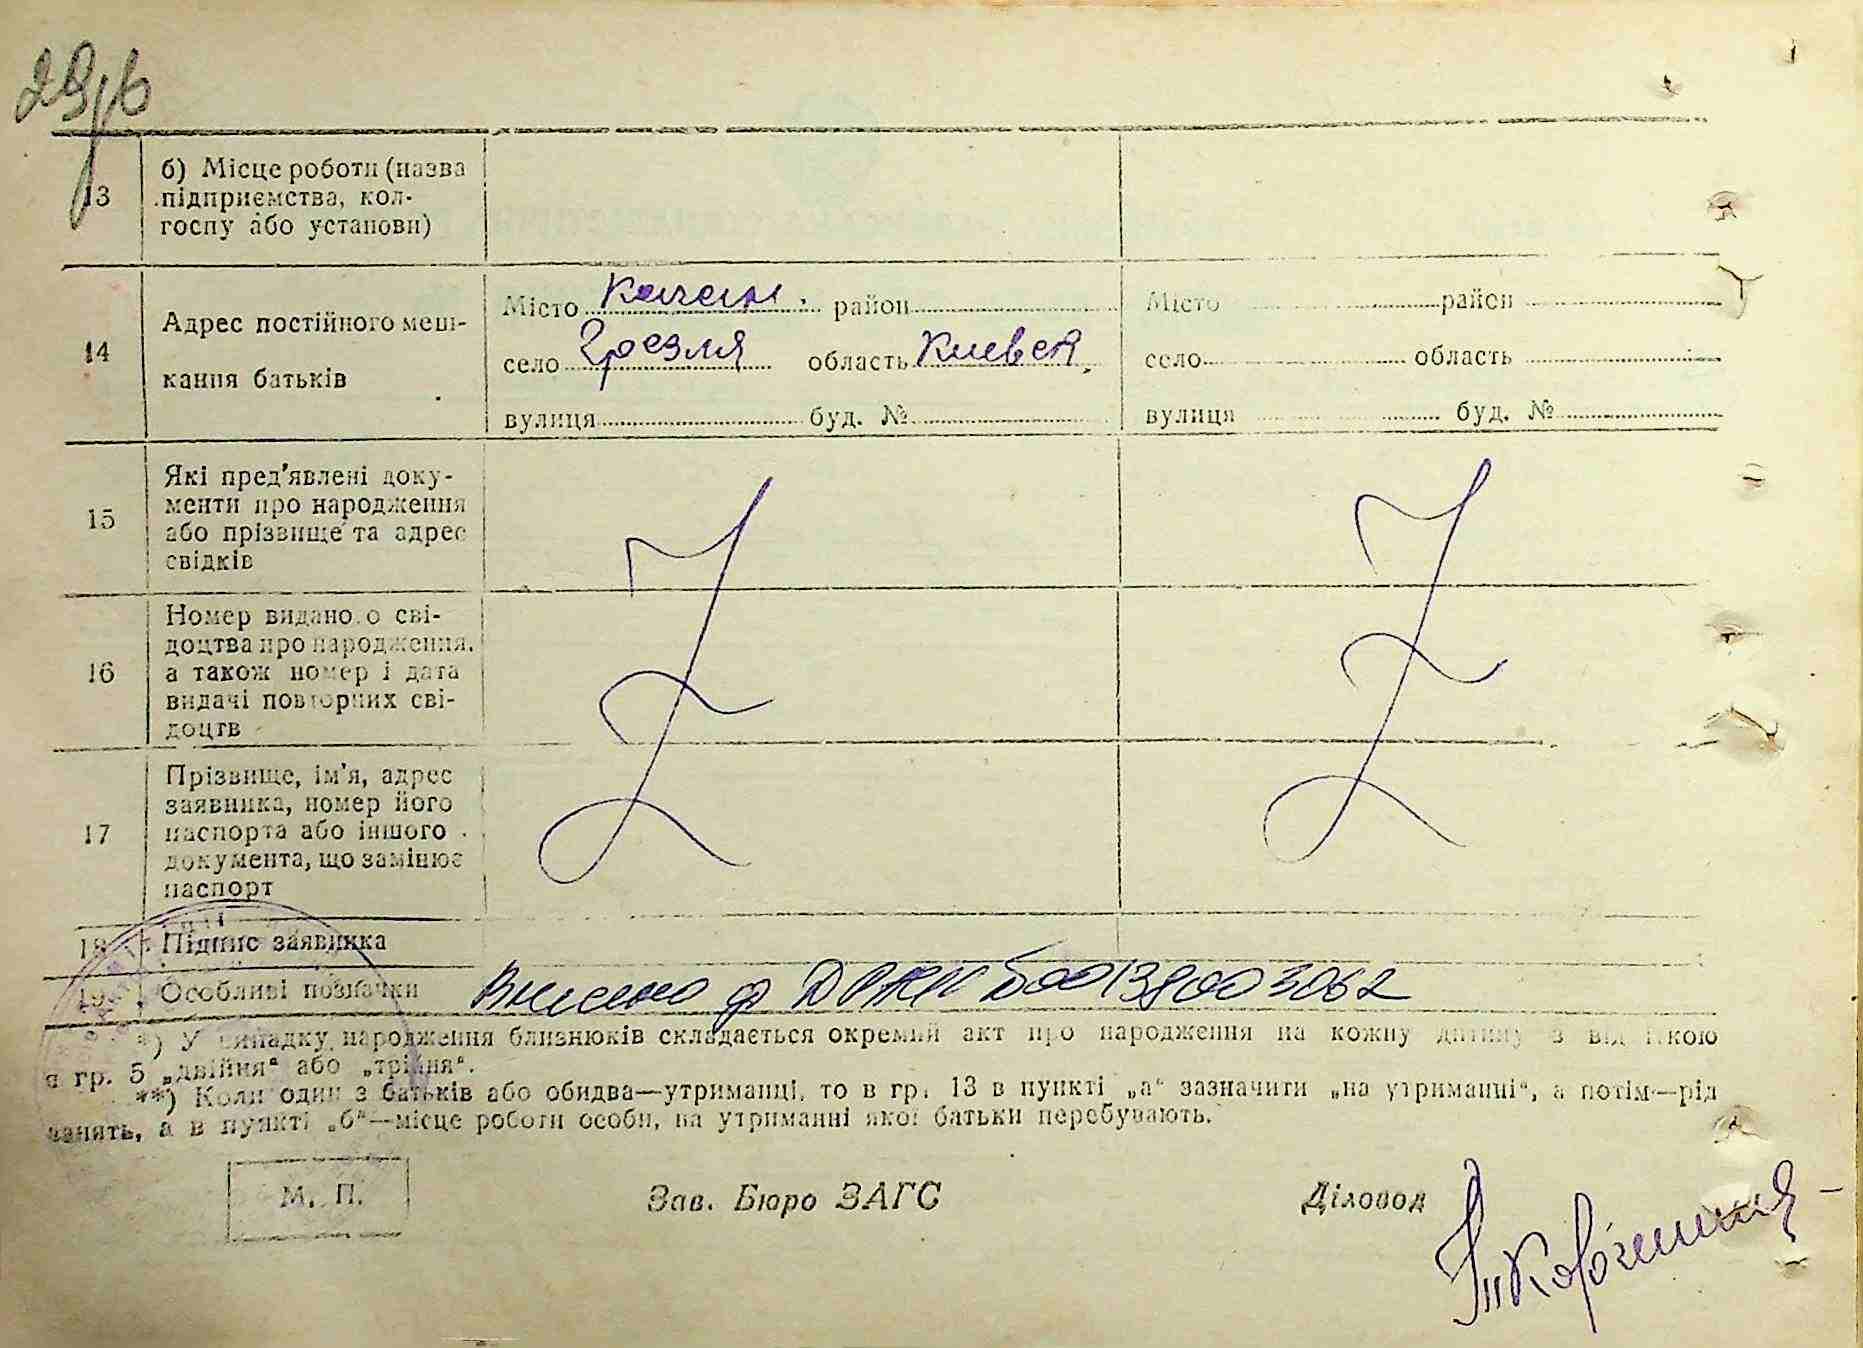 13 б) Місце роботи (назва
підприємства, кол-
госпу або установи)
14 Адрес постійного меш-
кання батьків
Місто район
село Грезля область Киевск.
вулиця буд. №
Місто район
село область
вулиця буд. №
15 Які пред'явлені доку-
менти про народження
або прізвище та адрес
свідків
16 Номер видано о сві-
доцтва про народження,
а також номер і дата
видачі повторних сві-
доцтв
17 Прізвище, ім'я, адрес
заявника, номер його
паспорта або іншого
документа, що замінює
паспорт
18 Підпис заявника
19 Особливі позначки Внесено до 00138003062
*) У випадку народження близнюків складається окремий акт про народження на кожну дитину з відміткою
в гр. 5 „двійня“ або „трійня“.
**) Коли один з батьків або обидва—утриманці, то в гр. 13 в пункті „а“ зазначити „на утриманні“, а потім—рід
занять, а в пункті „б“—місце роботи особи, на утриманні якої батьки перебувають.
М. П. Зав. Бюро ЗАГС Діловод